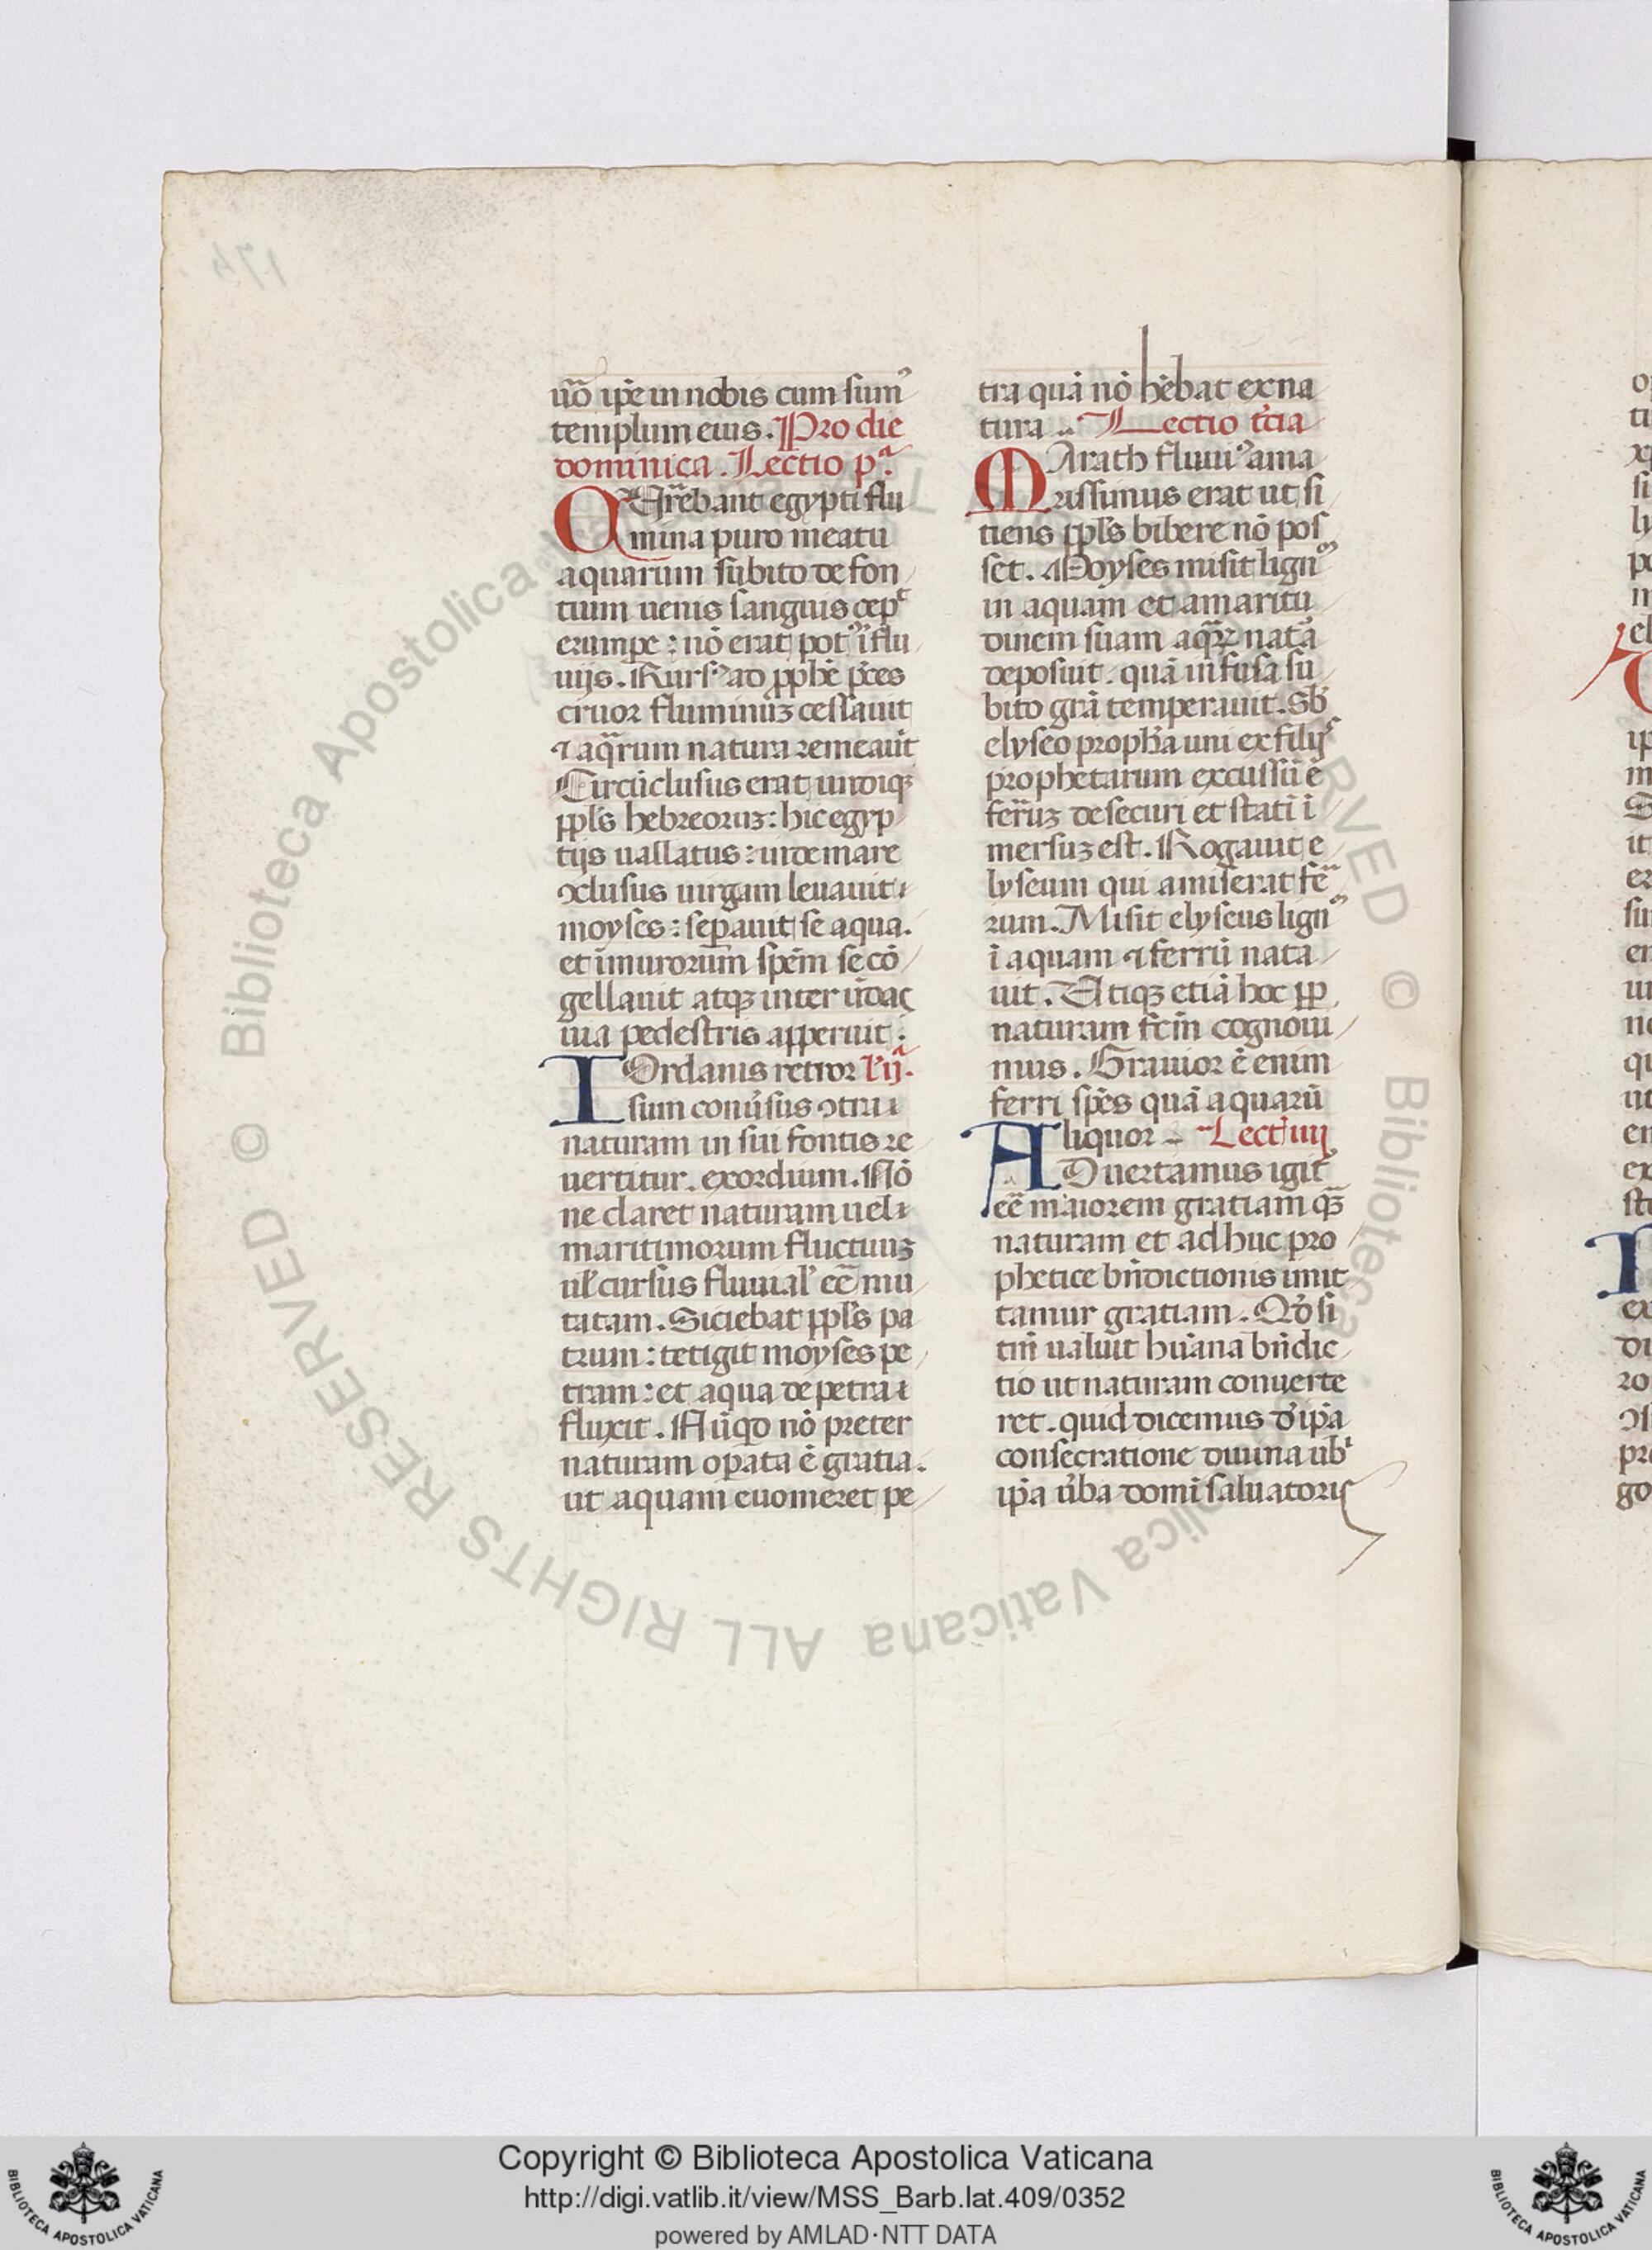 174
uo᷃ ip̄e in nobis cum sum᷒
templum eius. Pro die
dominica. Lectio pª.
CUrrebant egypti flu
mina puro meatu
aquarum subito de fon
tium uenis sanguis cep͛
erumpe : nō erat pot᷒ ī flu
uijs. Rurs᷒ ad pphē p̄ces
cruor fluminuꝫ cessauit
⁊ aqᷓrum natura remeauit
Circūclusus erat undiqꝫ
ppl̄s hebreoruꝫ : hic egyp
tijs uallatus : inde mare
ↄclusus uirgam leuauit
moyses : sep̄auit se aqua.
et ī murorum spēm se cō
gellauit atqꝫ inter ūdas
uia pedestris apperuit :
IOrdanis retror l'.ijª.
sum conūsus ↄtra
naturam in sui fontis re
uertitur. exordium. Nō
ne claret naturam uel
maritimorum fluctuuꝫ
ul' cursus fluuial' eē mu
tatam. Siciebat ppl̄s pa
trum : tetigit moyses pe
tram : et aqua de petra
fluxit. Nūqd nō preter
naturam op̄ata ē gratia.
ut aquam euomeret pe
tra quā nō hēbat ex na
tura. Lectio t̄cia
MArath fluui᷒ ama
rissimus erat ut si
tiens ppl̄s bibere nō pos
set. Moyses misit lign᷒
in aquam et amaritu
dinem suam aqᷓꝝ natā
deposuit. quā infusa su
bito grā temperauit. Sb̄
elyseo proph̄a uni ex filijs
prophetarum excussū ē
ferruꝫ de securi et statī ī
mersuꝫ est. Rogauit e
lyseum qui amiserat fer
rum. Misit elyseus lign᷒
ī aquam ⁊ ferrū nata
uit. Utiqꝫ etiā hoc pp
naturam fc̄m cognoui
mus. Grauior ē enim
ferri spēs quā aquarū
liquor. Lect' iiij
ADuertamus igit᷒
eē maiorem gratiam qᷓꝫ
naturam et adhuc pro
phetice bn̄dictionis imit
tamur gratiam. Qđ si
tm̄ ualuit hūana bn̄dic
tio ut naturam conuerte
ret. quid dicemus đ ip̄a
consecratione diuina ubi
ip̄a ūba domī saluatoris
© Biblioteca Apostolica Vaticana ALL RIGHTS RESERVED
Copyright © Biblioteca Apostolica Vaticana
http://digi.vatlib.it/view/MSS_Barb.lat.409/0352
powered by AMLAD·NTT DATA
BIBLIOTECA APOSTOLICA VATICANA
BIBLIOTECA APOSTOLICA VATICANA